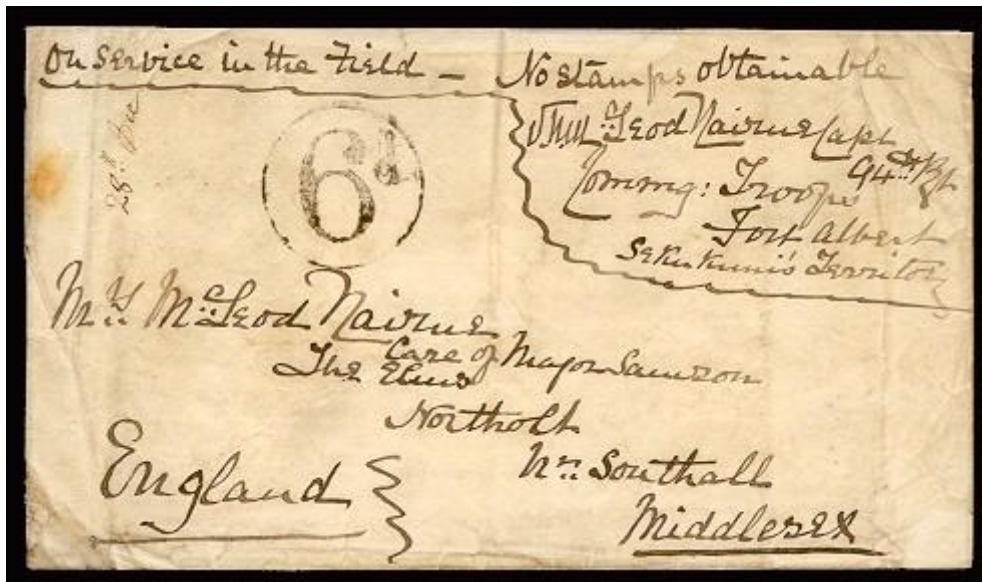 On Service in the Field — No stamps obtainable
McLeod Nairne Capt
94th Rgt
Commg: Troops
Fort Albert
Sekukuni's Territory
28th
6d
Mrs. McLeod Nairne
Care of Major Samson
The Elms
Northolt
England
Nr. Southall
Middlesex